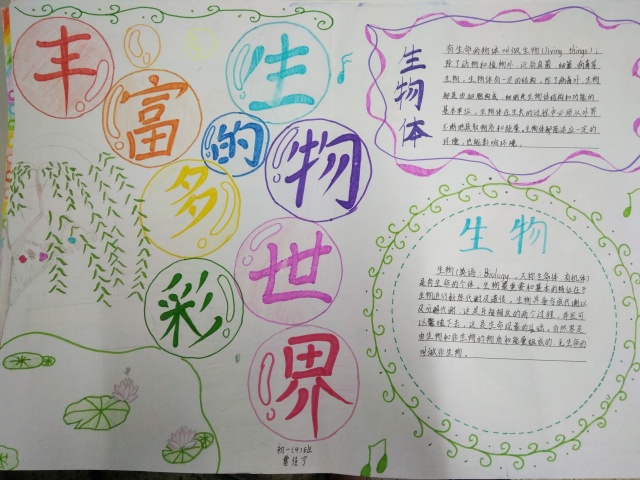 丰富多彩
的
生物世界
生物体
有生命的物体叫做生物体(living things),
除了动物和植物外,还包含真菌、细菌、病毒等
生物,生物体有一定的结构,除了病毒外,生物
都是由细胞构成,细胞是生物体结构和功能的
基本单位,生物体在生长的过程中必须从外界
不断地获取物质和能量,生物体都能适应一定的
环境,也能影响环境。
生物
生物(英语:Biology),又称生命体、有机体)
是有生命的个体,生物最重要和基本的特征在于
生物进行新陈代谢及遗传,生物具备合成代谢以
及分解代谢,这是互相相反的两个过程,并且可
以繁殖下去,这是生命现象的基础。自然界是
由生物和非生物的物质和能量组成的,无生命的
叫做非生物。
初一(4)班